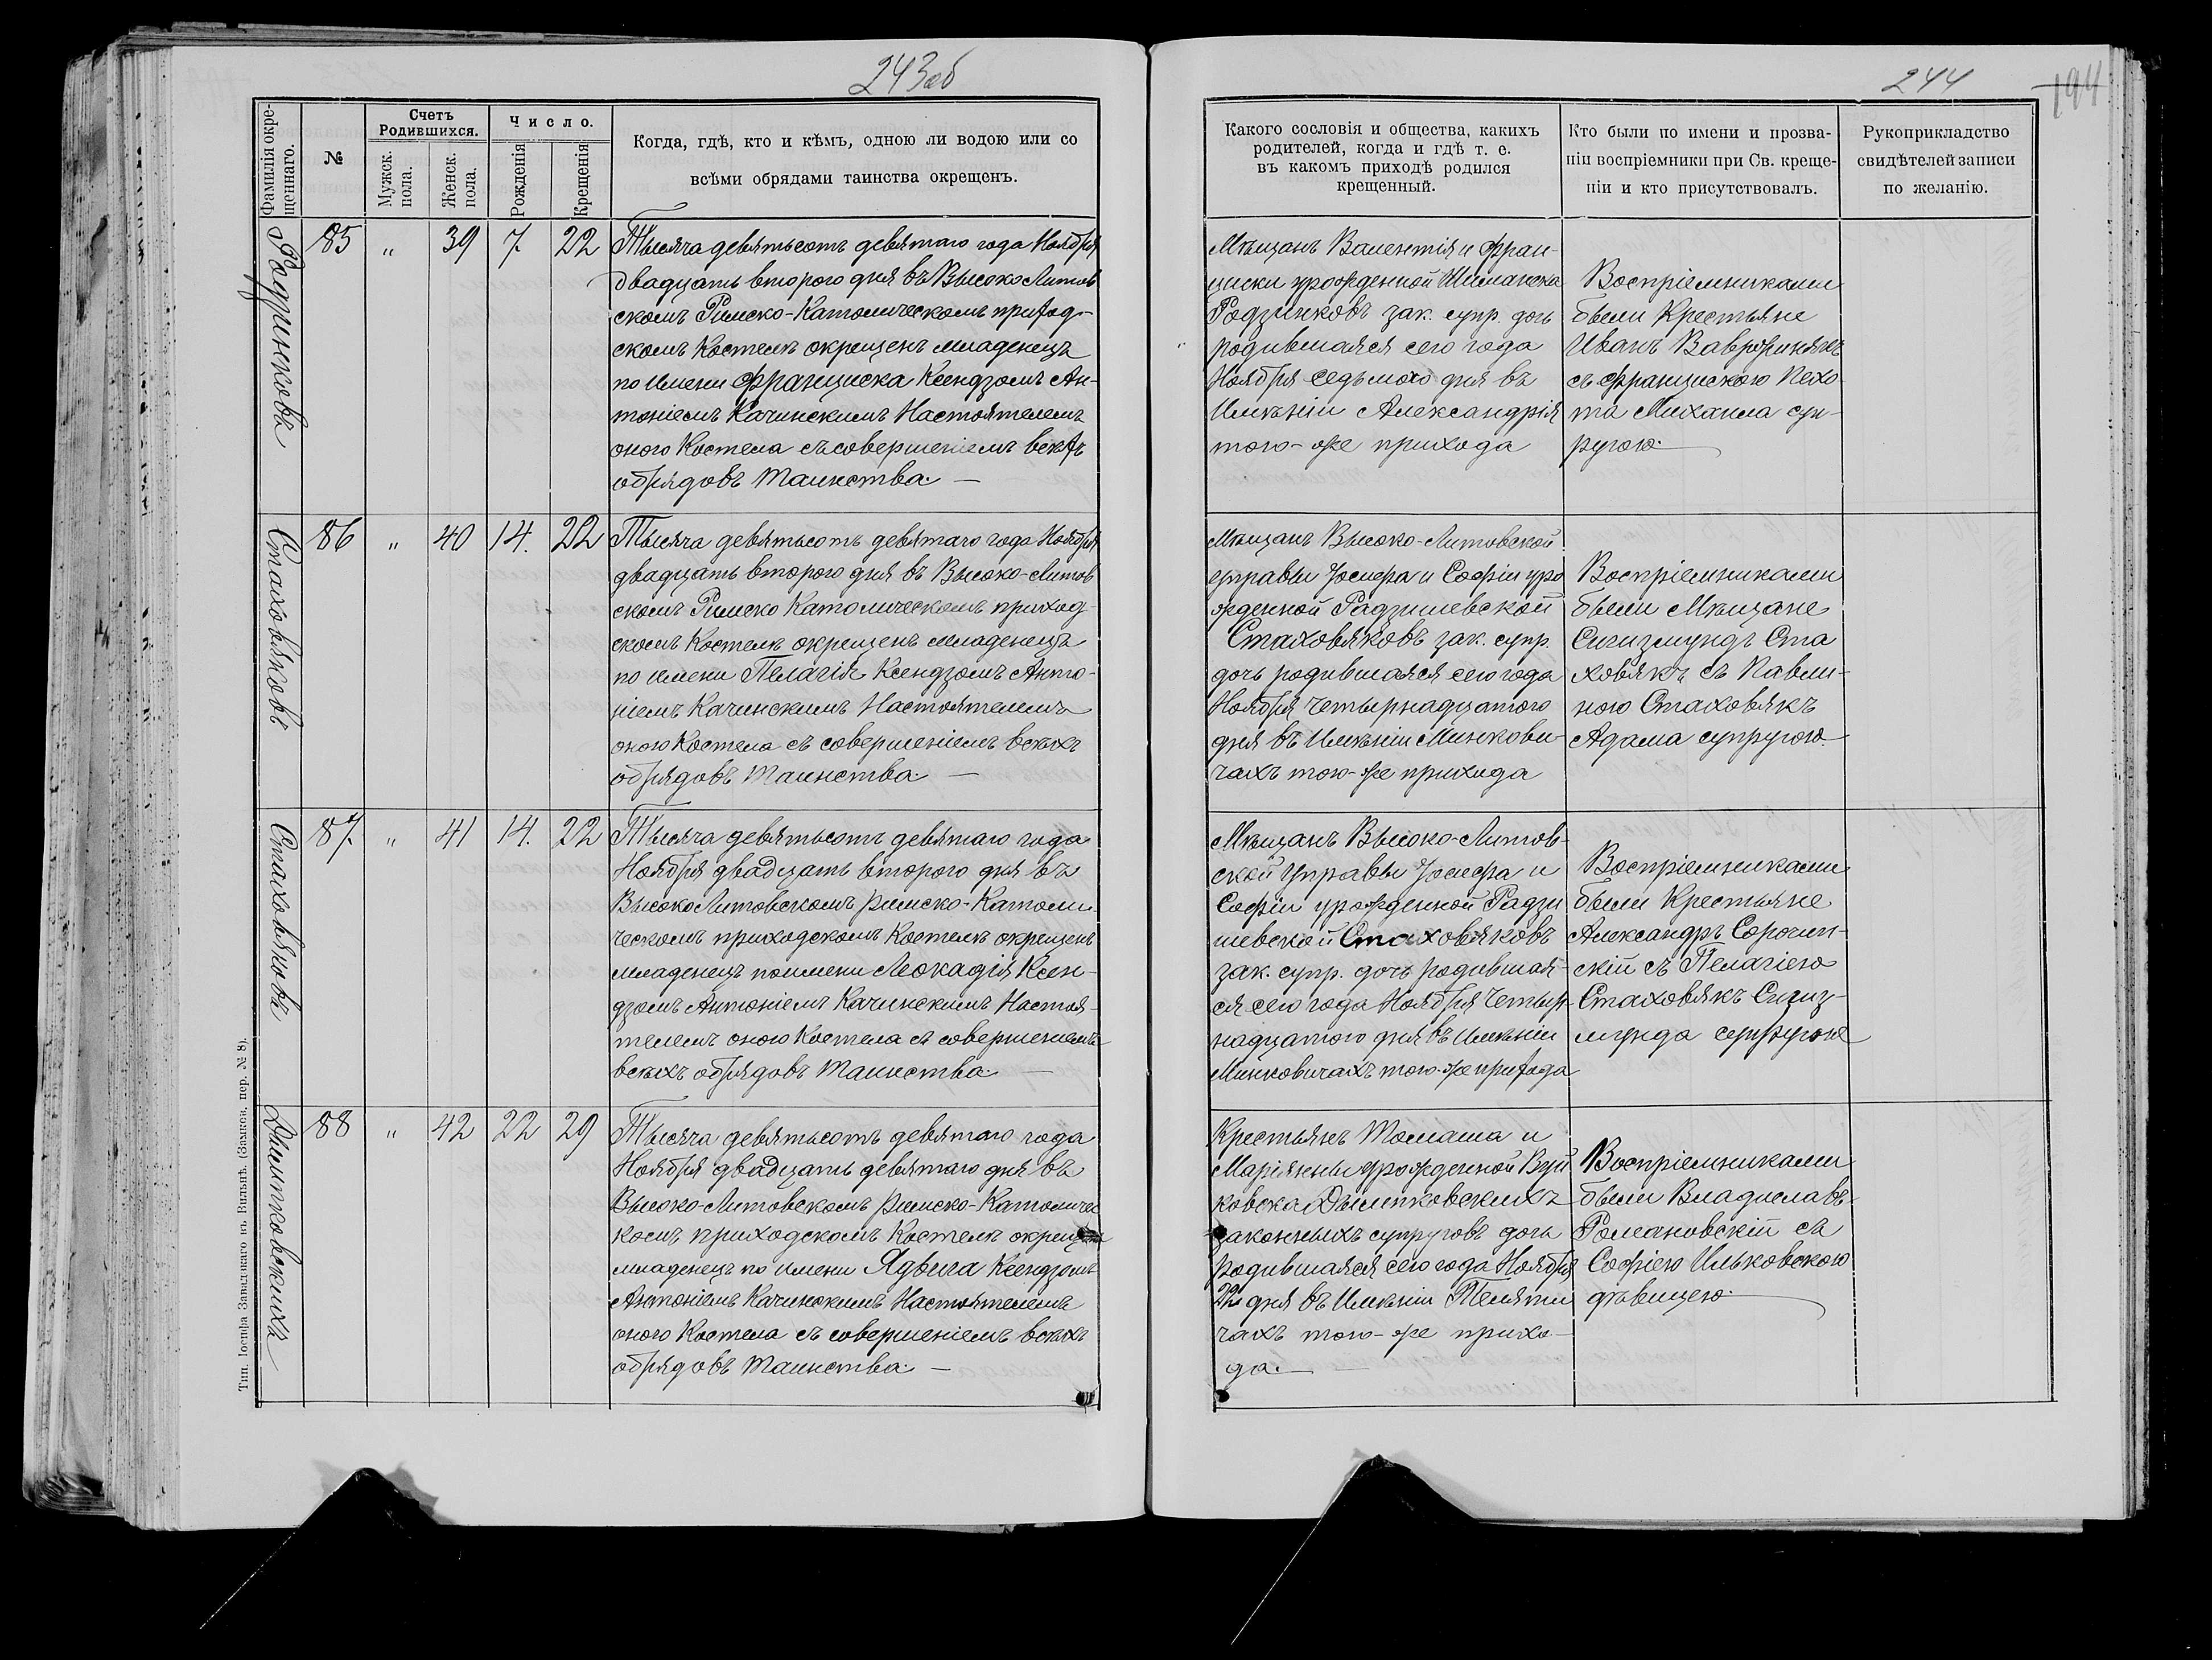 243об
Фамилія окре-
щеннаго.
№
Счетъ
Родившихся.
Мужск.
пола.
Женск.
пола.
Число.
Рожденія
Крещенія
Когда, гдѣ, кто и кѣмъ, одною ли водою или со
всѣми обрядами таинства окрещенъ.
Родзинковъ
85 " 39 7 22
Тысяча девятьсотъ девятаго года Ноября
двадцать второго дня въ Высоко Литов
скомъ Римско-Католическомъ приход-
скомъ Костелѣ окрещенъ младенецъ
по имени Франциска Ксендзомъ Ан-
тоніемъ Качинскимъ Настоятелемъ
оного Костела съ совершеніемъ всѣхъ
обрядовъ Таинства. —
Стаховяковъ
86 " 40 14. 22
Тысяча девятьсотъ девятаго года Ноября
двадцать второго дня въ Высоко-Литов
скомъ Римско Католическомъ приход-
скомъ Костелѣ окрещенъ младенецъ
по имени Пелагія Ксендзомъ Анто-
ніемъ Качинскимъ Настоятелемъ
оного Костела съ совершеніемъ всѣхъ
обрядовъ Таинства. —
Стаховяковъ
87. " 41 14. 22
Тысяча девятьсотъ девятаго года
Ноября двадцать второго дня въ
Высоко Литовскомъ Римско-Католи-
ческомъ приходскомъ Костелѣ окрещенъ
младенецъ по имени Леокадія Ксен-
дзомъ Антоніемъ Качинскимъ Настоя-
телемъ оного Костела съ совершеніемъ
всѣхъ обрядовъ Таинства. —
Дылитковскихъ
88 " 42 22 29
Тысяча девятьсотъ девятаго года
Ноября двадцать девятаго дня въ
Высоко-Литовскомъ Римско-Католичес
комъ приходскомъ Костелѣ окрещенъ
младенецъ по имени Ядвига Ксендзомъ
Антоніемъ Качинскимъ Настоятелемъ
оного Костела съ совершеніемъ всѣхъ
обрядовъ Таинства. —
Тип. Іосифа Завадзкаго въ Вильнѣ. (Замков. пер. № 8).
244
194
Какого сословія и общества, какихъ
родителей, когда и гдѣ т. е.
въ какомъ приходѣ родился
крещенный.
Кто были по имени и прозва-
ніи воспріемники при Св. креще-
ніи и кто присутствовалъ.
Рукоприкладство
свидѣтелей записи
по желанію.
Мѣщанъ Валентія и Фран-
циски урожденной Шиманска
Родзинковъ зак. супр. дочь
родившаяся сего года
Ноября седьмого дня въ
Имѣніи Александрія
того-же прихода
Воспріемниками
были Крестьяне
Иванъ Ваврженякъ
съ Францискою Пехо-
та Михаила суп-
ругою.
Мѣщанъ Высоко-Литовской
управы Іосифа и Софіи уро
жденной Радзишевской
Стаховяковъ зак. супр.
дочь родившаяся сего года
Ноября четырнадцатого
дня въ Имѣніи Минкови-
чахъ того-же прихода
Воспріемниками
были Мѣщане
Сигизмундъ Ста
ховякъ съ Павли-
ною Стаховякъ
Адама супругою.
Мѣщанъ Высоко-Литов-
ской Управы Іосифа и
Софіи урожденной Радзи
шевской Стаховяковъ
зак. супр. дочь родившая-
ся сего года Ноября четыр-
надцатого дня въ Имѣніи
Минковичахъ того-же прихода
Воспріемниками
были Крестьяне
Александръ Сорочин-
скій съ Пелагіею
Стаховякъ Сигиз-
мунда супругою
Крестьянъ Томаша и
Маріянны урожденной Вуй
ковска Дылитковскихъ
законныхъ супруговъ дочь
родившаяся сего года Ноября
22 дня въ Имѣніи Теляти
чахъ того-же прихо-
да. —
Воспріемниками
были Владиславъ
Романовскій съ
Софіею Ильковскою
дѣвицею.